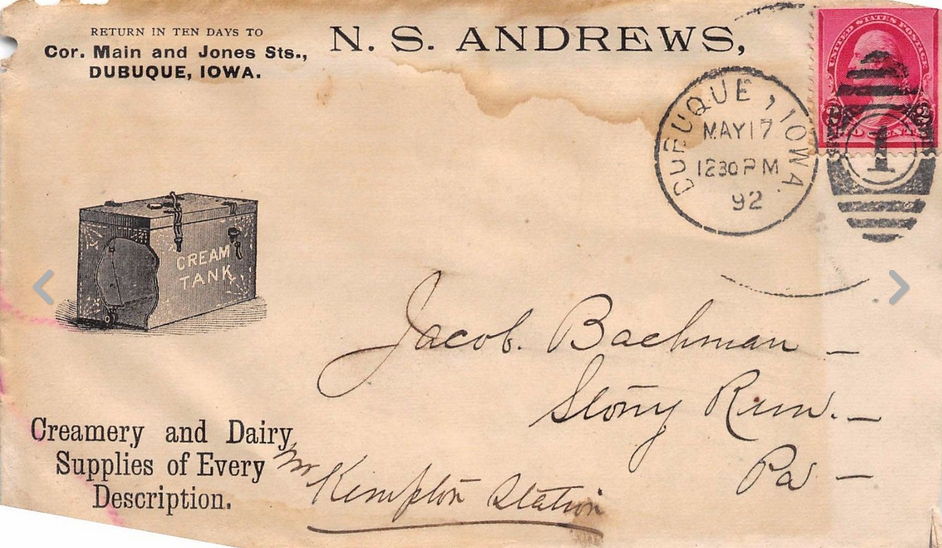 RETURN IN TEN DAYS TO
Cor. Main and Jones Sts.,
DUBUQUE, IOWA.
N. S. ANDREWS,
UNITED STATES POSTAGE
2 2
DUBUQUE, IOWA.
MAY 17
1230 PM
92
1
CREAM
TANK
Jacob. Bachman –
Stony Run. –
Pa –
Kempton Station
Creamery and Dairy
Supplies of Every
Description.